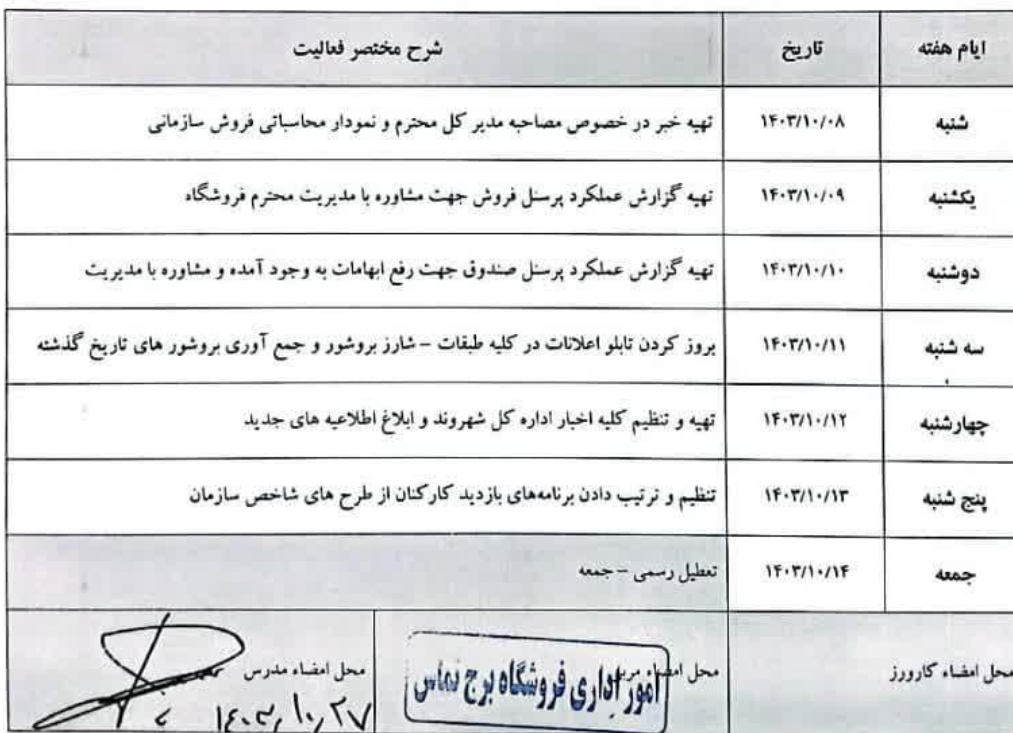 ایام هفته تاریخ شرح مختصر فعالیت
شنبه ۱۴۰۳/۱۰/۰۸ تهیه خبر در خصوص مصاحبه مدیر کل محترم و نمودار محاسباتی فروش سازمانی
یکشنبه ۱۴۰۳/۱۰/۰۹ تهیه گزارش عملکرد پرسنل فروش جهت مشاوره با مدیریت محترم فروشگاه
دوشنبه ۱۴۰۳/۱۰/۱۰ تهیه گزارش عملکرد پرسنل صندوق جهت رفع ابهامات به وجود آمده و مشاوره با مدیریت
سه شنبه ۱۴۰۳/۱۰/۱۱ بروز کردن تابلو اعلانات در کلیه طبقات – شارز بروشور و جمع آوری بروشور های تاریخ گذشته
چهارشنبه ۱۴۰۳/۱۰/۱۲ تهیه و تنظیم کلیه اخبار اداره کل شهروند و ابلاغ اطلاعیه های جدید
پنج شنبه ۱۴۰۳/۱۰/۱۳ تنظیم و ترتیب دادن برنامه‌های بازدید کارکنان از طرح های شاخص سازمان
جمعه ۱۴۰۳/۱۰/۱۴ تعطیل رسمی – جمعه
محل امضاء کارورز محل امضاء محل امضاء مدرس
امور اداری فروشگاه برج نماس
۱۴۰۳/۱۰/۲۷